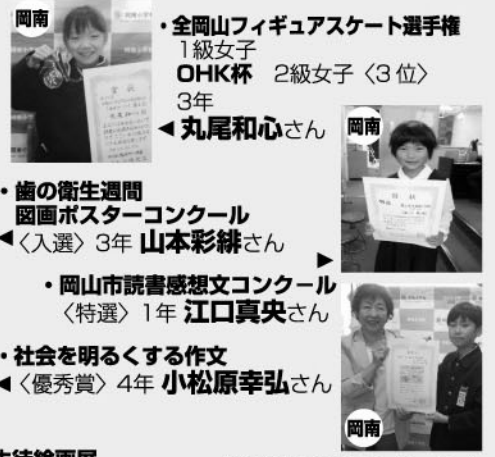 岡南
・全岡山フィギュアスケート選手権
1級女子
OHK杯 2級女子〈3位〉
3年
◀丸尾和心さん
岡南
・歯の衛生週間
図画ポスターコンクール
◀〈入選〉3年 山本彩緋さん
▶
・岡山市読書感想文コンクール
〈特選〉1年 江口真央さん
・社会を明るくする作文
◀〈優秀賞〉4年 小松原幸弘さん
岡南
賞状